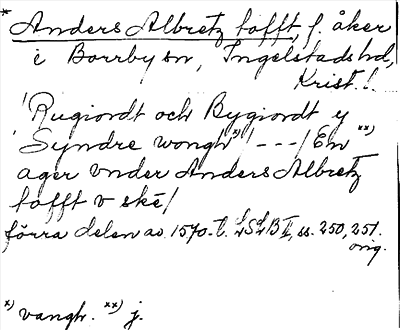 * Anders Albretz tofft, f. åker
i Borrby sn, Ingelstads hd,
Krist. l.
/Rugiordt och Bygiordt y
Syndre wongh *)/---/ En **)
ager vnder Anders Albretz
tofft v ske/
förra delen av 1570-t. LSLB II, ss. 250, 251.
orig.
x) vangh. xx) j.